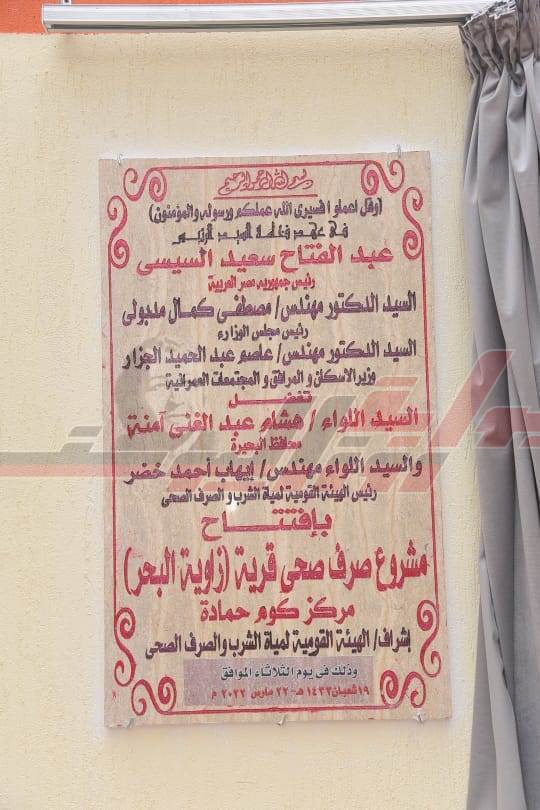 بسم الله الرحمن الرحيم
(وقل اعملوا فسيرى الله عملكم ورسوله والمؤمنون)
فى عهد فخامة السيد الرئيس
عبد الفتاح سعيد السيسى
رئيس جمهورية مصر العربية
السيد الدكتور مهندس/ مصطفى كمال مدبولى
رئيس مجلس الوزراء
السيد الدكتور مهندس/ عاصم عبد الحميد الجزار
وزير الاسكان و المرافق و المجتمعات العمرانية
تفضل
السيد اللواء / هشام عبد الغنى آمنة
محافظ البحيرة
والسيد اللواء مهندس/ إيهاب أحمد خضر
رئيس الهيئة القومية لمياة الشرب و الصرف الصحى
بإفتتاح
مشروع صرف صحى قرية (زاوية البحر)
مركز كوم حمادة
إشراف/ الهيئة القومية لمياة الشرب والصرف الصحى
وذلك فى يوم الثلاثاء الموافق
١٩ شعبان ١٤٤٣ هـ - ٢٢ مارس ٢٠٢٢ م